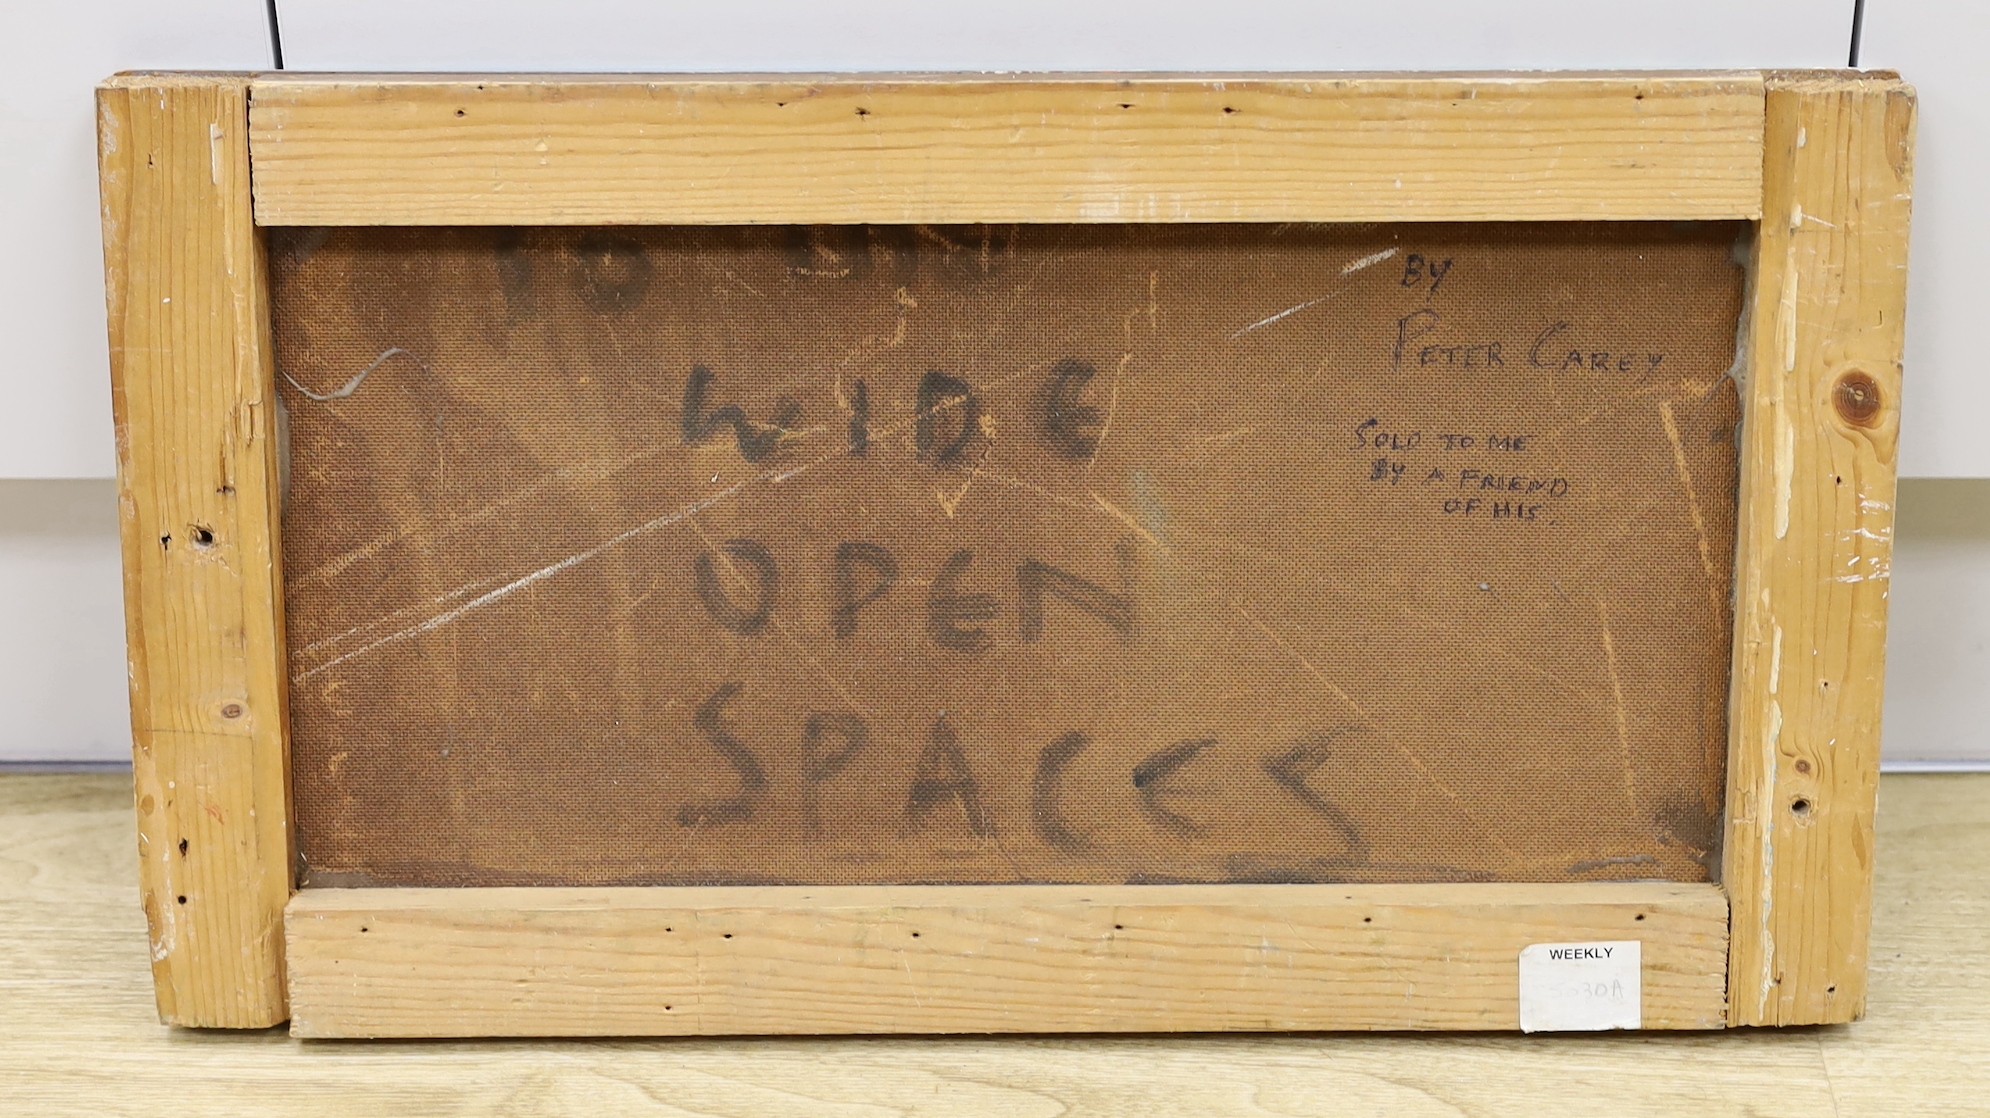 WIDE
OPEN
SPACES
BY
PETER CAREY
SOLD TO ME
BY A FRIEND
OF HIS.
WEEKLY